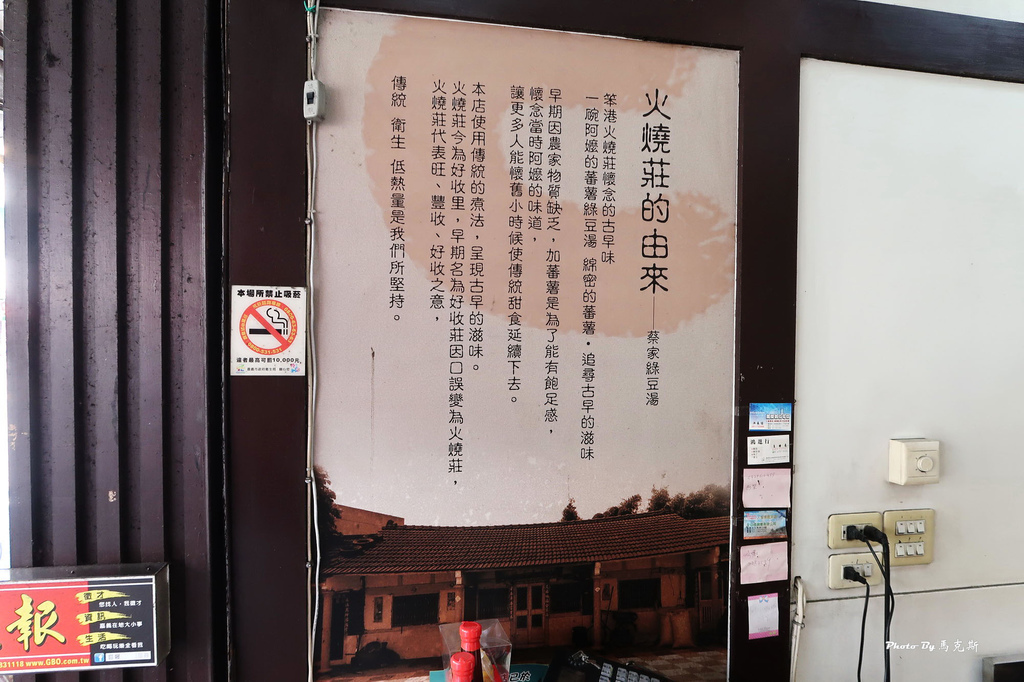 火燒莊的由來——蔡家綠豆湯
笨港火燒莊懷念的古早味
一碗阿嬤的蕃薯綠豆湯 綿密的蕃薯•追尋古早的滋味
早期因農家物質缺乏，加蕃薯是為了能有飽足感，
懷念當時阿嬤的味道，
讓更多人能懷舊小時候使傳統甜食延續下去。
本店使用傳統的煮法，呈現古早的滋味。
火燒莊今為好收里，早期名為好收莊因口誤變為火燒莊，
火燒莊代表旺、豐收、好收之意，
傳統 衛生 低熱量是我們所堅持。
本場所禁止吸菸
違者最高可罰10,000元
報
徵才
您找人，我徵才
資訊
嘉義在地大小事
生活
吃喝玩樂全普照
831118 www.GBO.com.tw
Photo By 馬克斯